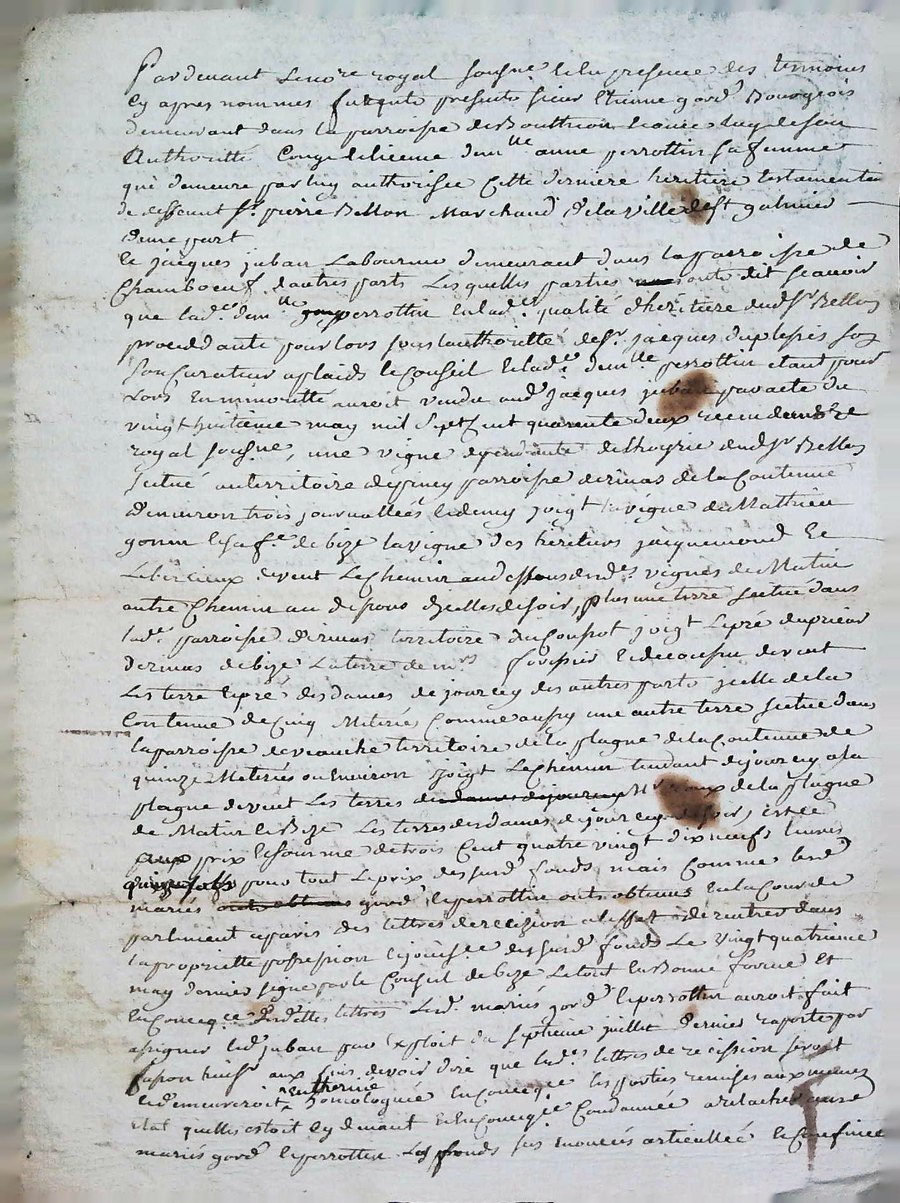 Par devant Le no.re royal sousigné & en presence des temoins
Cy apres nommes fut present sieur Etienne gord Bourgeois
demeurant dans la parroisse de Bonthéon & avec luy de son
Authorité Congé & licence dem.lle anne perrottin sa femme
qui demeure par luy authorisée Cette derniere heritiere testamentaire
de deffunt S.r pierre Bellon Marchand de la ville de S.t galmier
d'une part
Et jacques juban Laboureur demeurant dans la parroisse de
Chamboeuf d'autre part Les quelles parties ont dit scavoir
que lad.e dem.lle perrottin en lad.e qualité d'heritiere dud S.r Bellon
proceddante pour lors sous l'authorité de S.r jacques duplessis son
Son Curateur a plaids & Conseil & lad.e dem.lle perrottin etant pour
Lors En minorité auroit vendu aud jacques juban par acte du
vingt huitieme may mil sept Cent quarente deux receu
royal sousigné, une vigne dependante de l'hoyrie dud S.r Bellon
scitué au territoire parroisse de rivas de la Contenue
d'environ trois journallées & demy joigt la vigne de Mathieu
gonin & sa f.e de bize la vigne des heritiers jacquemond &
de vent Le Chemin au dessous desd.es vignes de Matin
autre Chemin au dessous d'jcelles de soir, plus une terre scitué dans
lad.e parroisse de rivas territoire du joigt Le pré du prieur
de rivas de bize La terre de m.rs forissier & de vent
Les terre & pré des dames de jourcey des autres parts jcelle de la
Contenue de Cinq Meterée Comme aussy une autre terre scitué dans
la parroisse de veauche territoire de la plagne de la Contenue de
quinze Meteriés ou Environ joigt Le Chemin tendant de jourcey a la
plagne de vent Les terres des dames de jourcey de la plagne
de Matin & Bize Les terres des dames de jourcey de soir, & ce
aux prix & somme de trois Cent quatre vingt dix neufs Livres
quinze sols pour tout Le prix des susd fonds mais Comme lesd
mariés ont obtenus gord & perrottin ont obtenus En la Cour de
parlement a paris des lettres de rezizion a l'effet de rentrer dans
la proprietté possession & jouiss.ce des susd fonds Le Vingt quatrieme
may dernier signé par le Conseil de bize Le tout En Bonne forme Et
En Conceq.ce desdittes lettres Lesd mariés gord & perrottin auroit fait
assigner led juban par Exploit du septieme juillet dernier raporté par
huiss.r aux fins de voir dire que lad.es lettres de recission seroit
& demeureroit Entherinée homologuée En Conceq.ce les parties remises aux memes
Etat quelles estoit Cy devant & En Conceq.ce Condamnée a relacher aux
mariés gord & perrottin Les fonds sus Enoncés articullée & Confinée